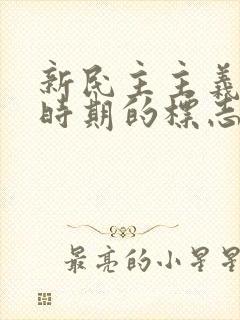 新民主主義
時期的標志
最亮的小星星